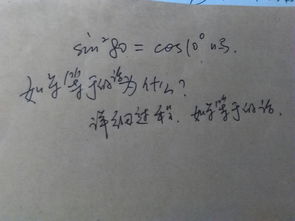 sin²80 = cos10° 吗.
如果等于的话为什么?
详细过程. 如果等于的话.